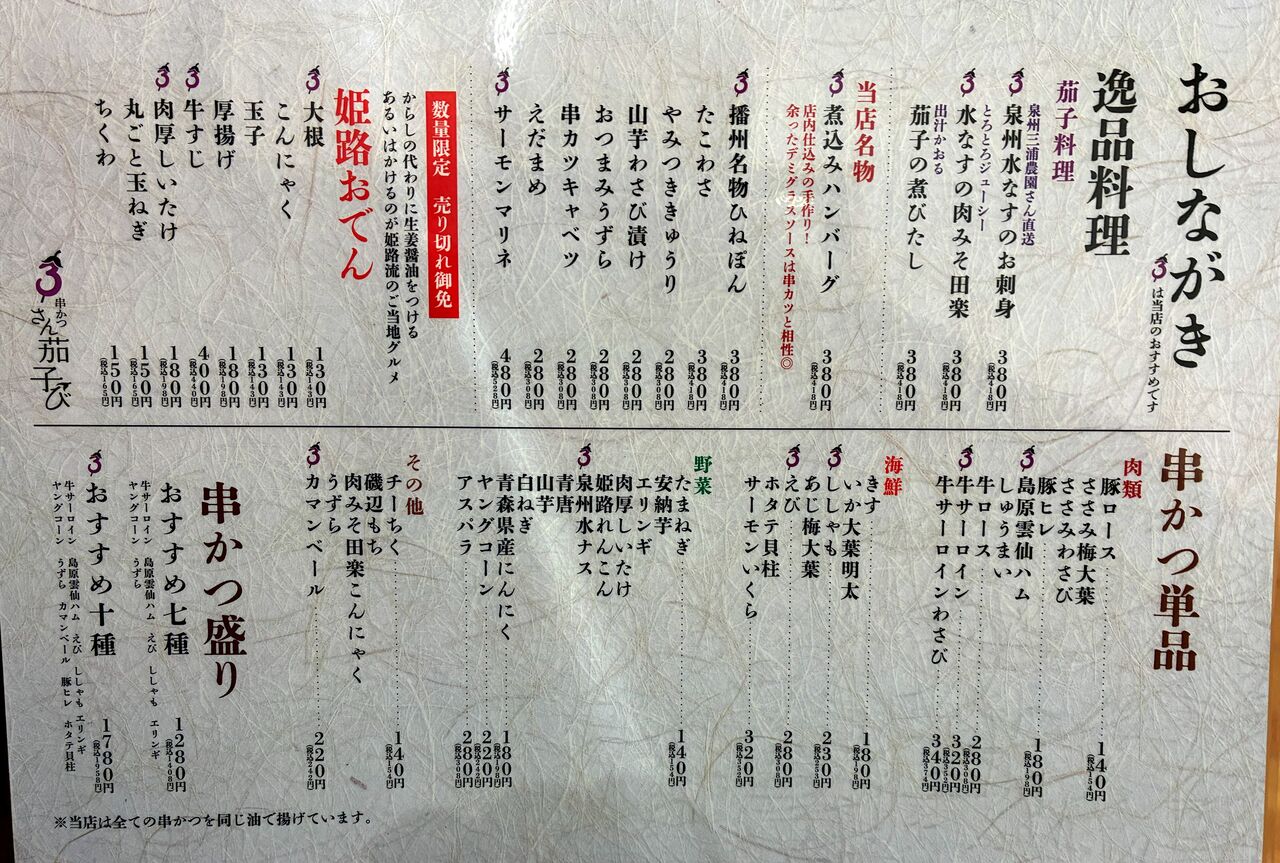 おしながき
は当店のおすすめです
逸品料理
茄子料理
泉州三浦農園さん直送
泉州水なすのお刺身
380円
(税込418円)
とろとろジューシー
水なすの肉みそ田楽
380円
(税込418円)
出汁かおる
茄子の煮びたし
380円
(税込418円)
当店名物
煮込みハンバーグ
380円
(税込418円)
店内仕込みの手作り!
余ったデミグラスソースは串カツと相性◎
播州名物ひねぽん
380円
(税込418円)
たこわさ
380円
(税込418円)
やみつききゅうり
280円
(税込308円)
山芋わさび漬け
280円
(税込308円)
おつまみうずら
280円
(税込308円)
串カツキャベツ
280円
(税込308円)
えだまめ
280円
(税込308円)
サーモンマリネ
480円
(税込528円)
数量限定 売り切れ御免
からしの代わりに生姜醤油をつける
あるいはかけるのが姫路流のご当地グルメ
姫路おでん
大根
130円
(税込143円)
こんにゃく
130円
(税込143円)
玉子
130円
(税込143円)
厚揚げ
180円
(税込198円)
牛すじ
400円
(税込440円)
肉厚しいたけ
180円
(税込198円)
丸ごと玉ねぎ
150円
(税込165円)
ちくわ
150円
(税込165円)
串かつ
さん茄子び
串かつ単品
肉類
豚ロース
140円
(税込154円)
ささみ梅大葉
ささみわさび
豚ヒレ
180円
(税込198円)
島原雲仙ハム
しゅうまい
牛ロース
280円
(税込308円)
牛サーロイン
320円
(税込352円)
牛サーロインわさび
340円
(税込374円)
海鮮
きす
180円
(税込198円)
いか大葉明太
ししゃも
230円
(税込253円)
あじ梅大葉
えび
280円
(税込308円)
ホタテ貝柱
サーモンいくら
320円
(税込352円)
野菜
たまねぎ
140円
(税込154円)
安納芋
エリンギ
肉厚しいたけ
姫路れんこん
泉州水ナス
青唐
山芋
白ねぎ
青森県産にんにく
180円
(税込198円)
ヤングコーン
220円
(税込242円)
アスパラ
280円
(税込308円)
その他
チーちく
140円
(税込154円)
磯辺もち
肉みそ田楽こんにゃく
うずら
カマンベール
220円
(税込242円)
串かつ盛り
おすすめ七種
1280円
(税込1408円)
牛サーロイン 島原雲仙ハム えび ししゃも エリンギ
ヤングコーン うずら
おすすめ十種
1780円
(税込1958円)
牛サーロイン 島原雲仙ハム えび ししゃも エリンギ
ヤングコーン うずら カマンベール 豚ヒレ ホタテ貝柱
※当店は全ての串かつを同じ油で揚げています。